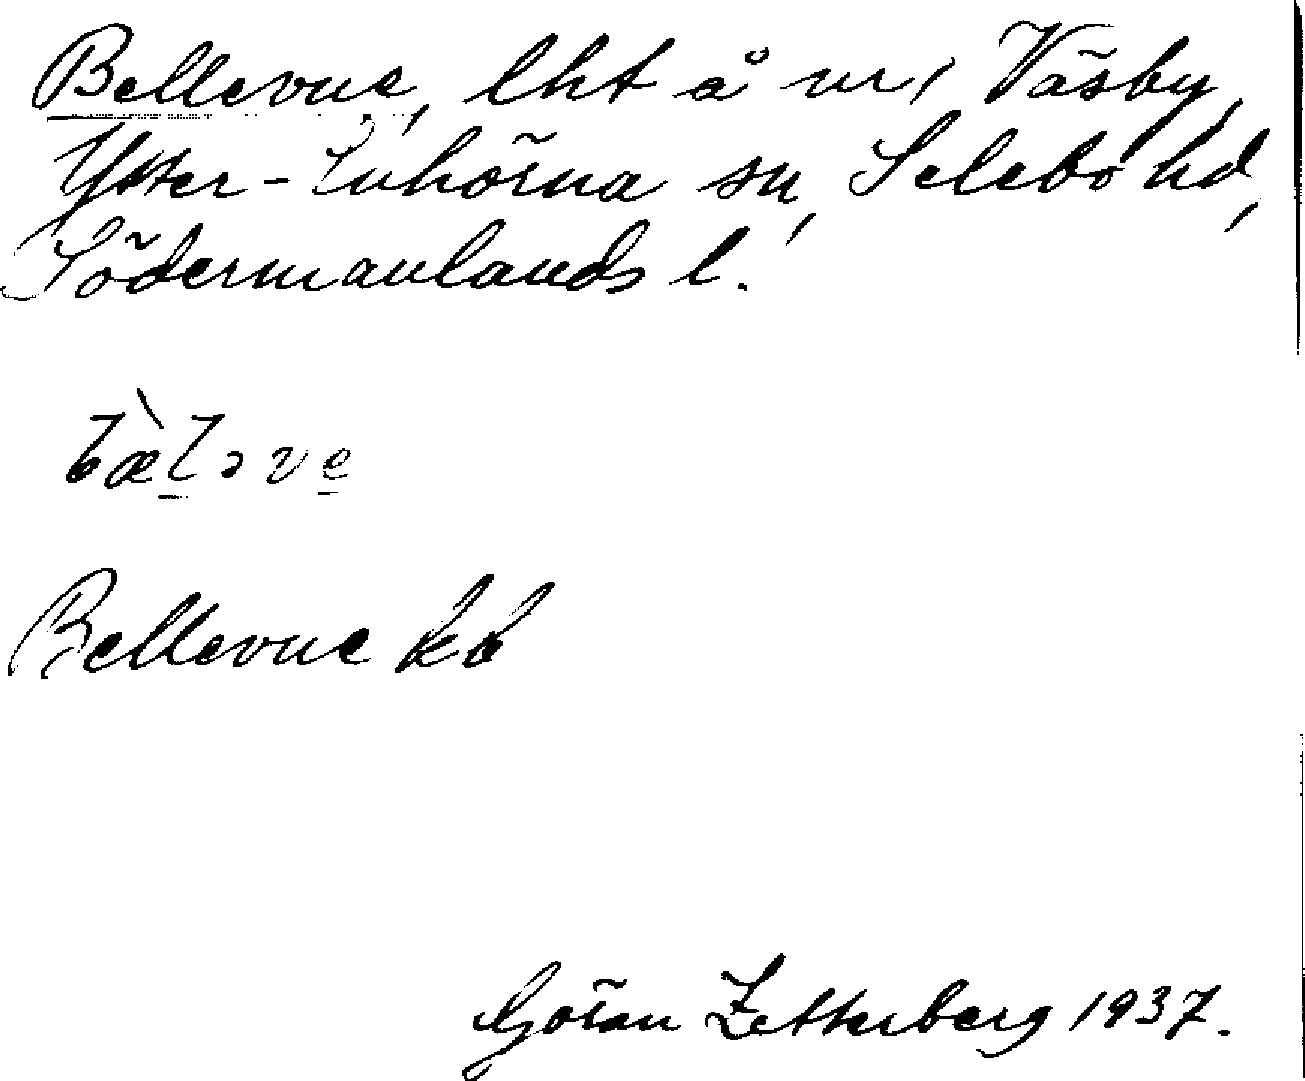 Bellevue, lht å nr 1 Väsby,
Ytter-Enhörna sn, Selebo hd,
Södermanlands l.
bæ̀l̲əve̲
Bellevue kb
Göran Zetterberg 1937.